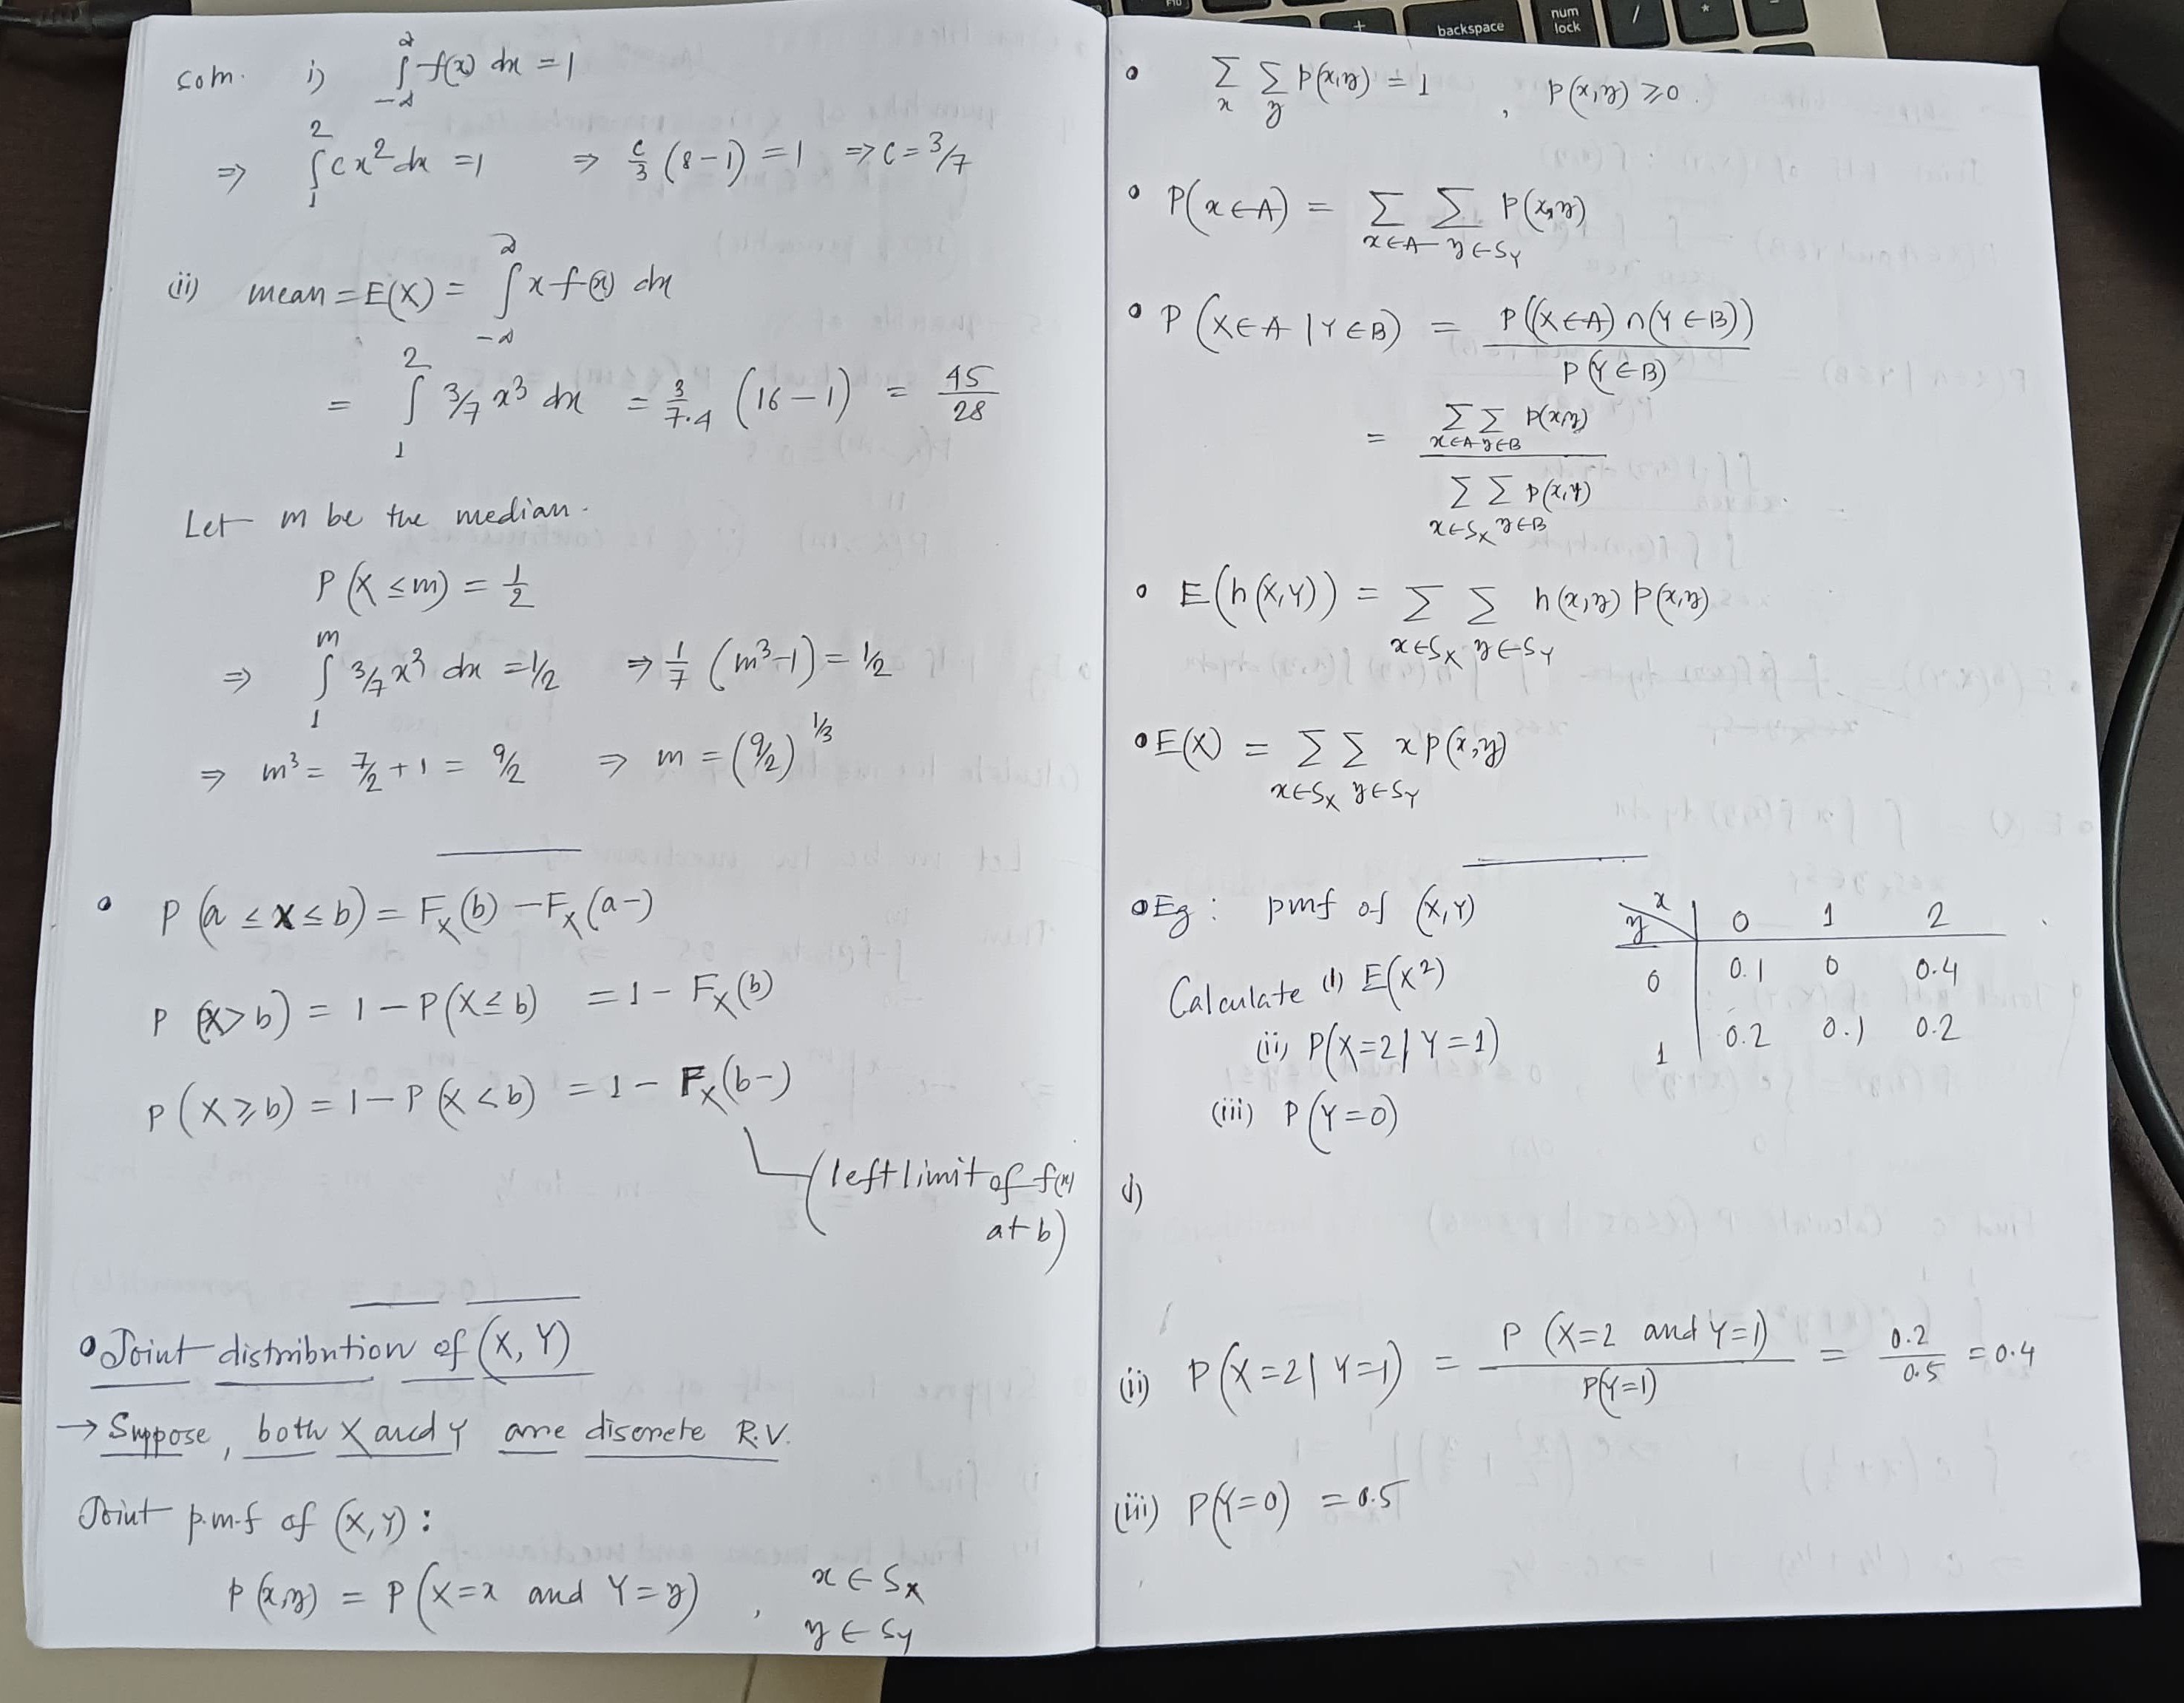 Soln. i) ∫_{-∞}^{∞} f(x) dx = 1
⇒ ∫_1^2 cx² dx = 1 ⇒ c/3 (8-1) = 1 ⇒ c = 3/7
(ii) mean = E(X) = ∫_{-∞}^{∞} x f(x) dx
= ∫_1^2 3/7 x³ dx = 3/7.4 (16-1) = 45/28
Let m be the median.
P(X ≤ m) = 1/2
⇒ ∫_1^m 3/7 x² dx = 1/2 ⇒ 1/7 (m³-1) = 1/2
⇒ m³ = 7/2 + 1 = 9/2 ⇒ m = (9/2)^{1/3}
• P(a ≤ X ≤ b) = F_X(b) - F_X(a-)
P(X > b) = 1 - P(X ≤ b) = 1 - F_X(b)
P(X ≥ b) = 1 - P(X < b) = 1 - F_X(b-)
(left limit of f(x)
at b)
• Joint distribution of (X, Y)
→ Suppose, both X and Y are discrete R.V.
Joint p.m.f of (X, Y):
p(x,y) = P(X=x and Y=y), x ∈ S_X
y ∈ S_Y
• Σ_x Σ_y p(x,y) = 1, p(x,y) ≥ 0.
• P(x ∈ A) = Σ_{x∈A} Σ_{y∈S_Y} p(x,y)
• P(X ∈ A | Y ∈ B) = P((X ∈ A) ∩ (Y ∈ B)) / P(Y ∈ B)
= Σ_{x∈A} Σ_{y∈B} p(x,y) / Σ_{x∈S_X} Σ_{y∈B} p(x,y)
• E(h(X,Y)) = Σ_{x∈S_X} Σ_{y∈S_Y} h(x,y) p(x,y)
• E(X) = Σ_{x∈S_X} Σ_{y∈S_Y} x p(x,y)
• Eg: pmf of (X,Y)
y\x 0 1 2
0 0.1 0 0.4
1 0.2 0.1 0.2
Calculate (i) E(X²)
(ii) P(X=2 | Y=1)
(iii) P(Y=0)
i)
(ii) P(X=2 | Y=1) = P(X=2 and Y=1) / P(Y=1) = 0.2/0.5 = 0.4
(iii) P(Y=0) = 0.5
backspace
num
lock
/
*
-
+
F10